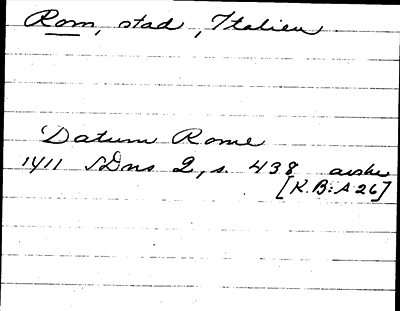 Rom, stad, Italien
Datum Rome
1411 SDns 2, s. 438 avskr
[K.B: A 26]